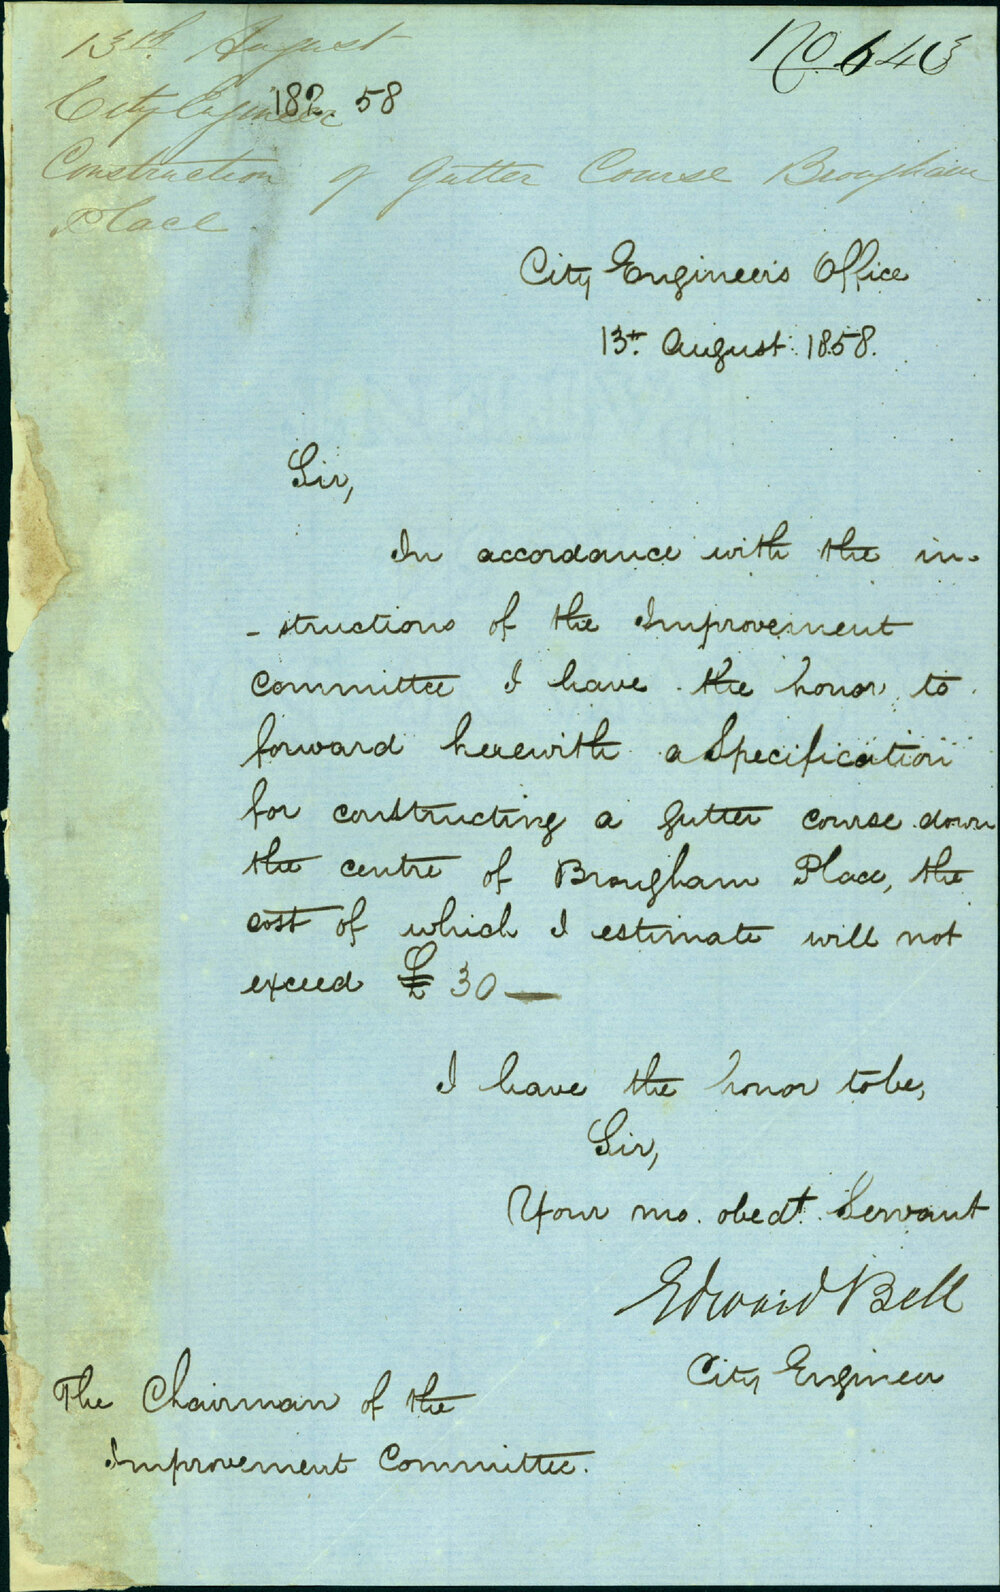 13th August
No. 640
City Engineer
182 58
Construction of Gutter Course Brougham
Place.
City Engineer's Office
13th August 1858.
Sir,
In accordance with the in-
-structions of the Improvement
Committee I have the honor to
forward herewith a Specification
for constructing a gutter course down
the centre of Brougham Place, the
cost of which I estimate will not
exceed £30 —
I have the honor to be,
Sir,
Your mo. obedt. Servant
Edward Bell
City Engineer
The Chairman of the
Improvement Committee.